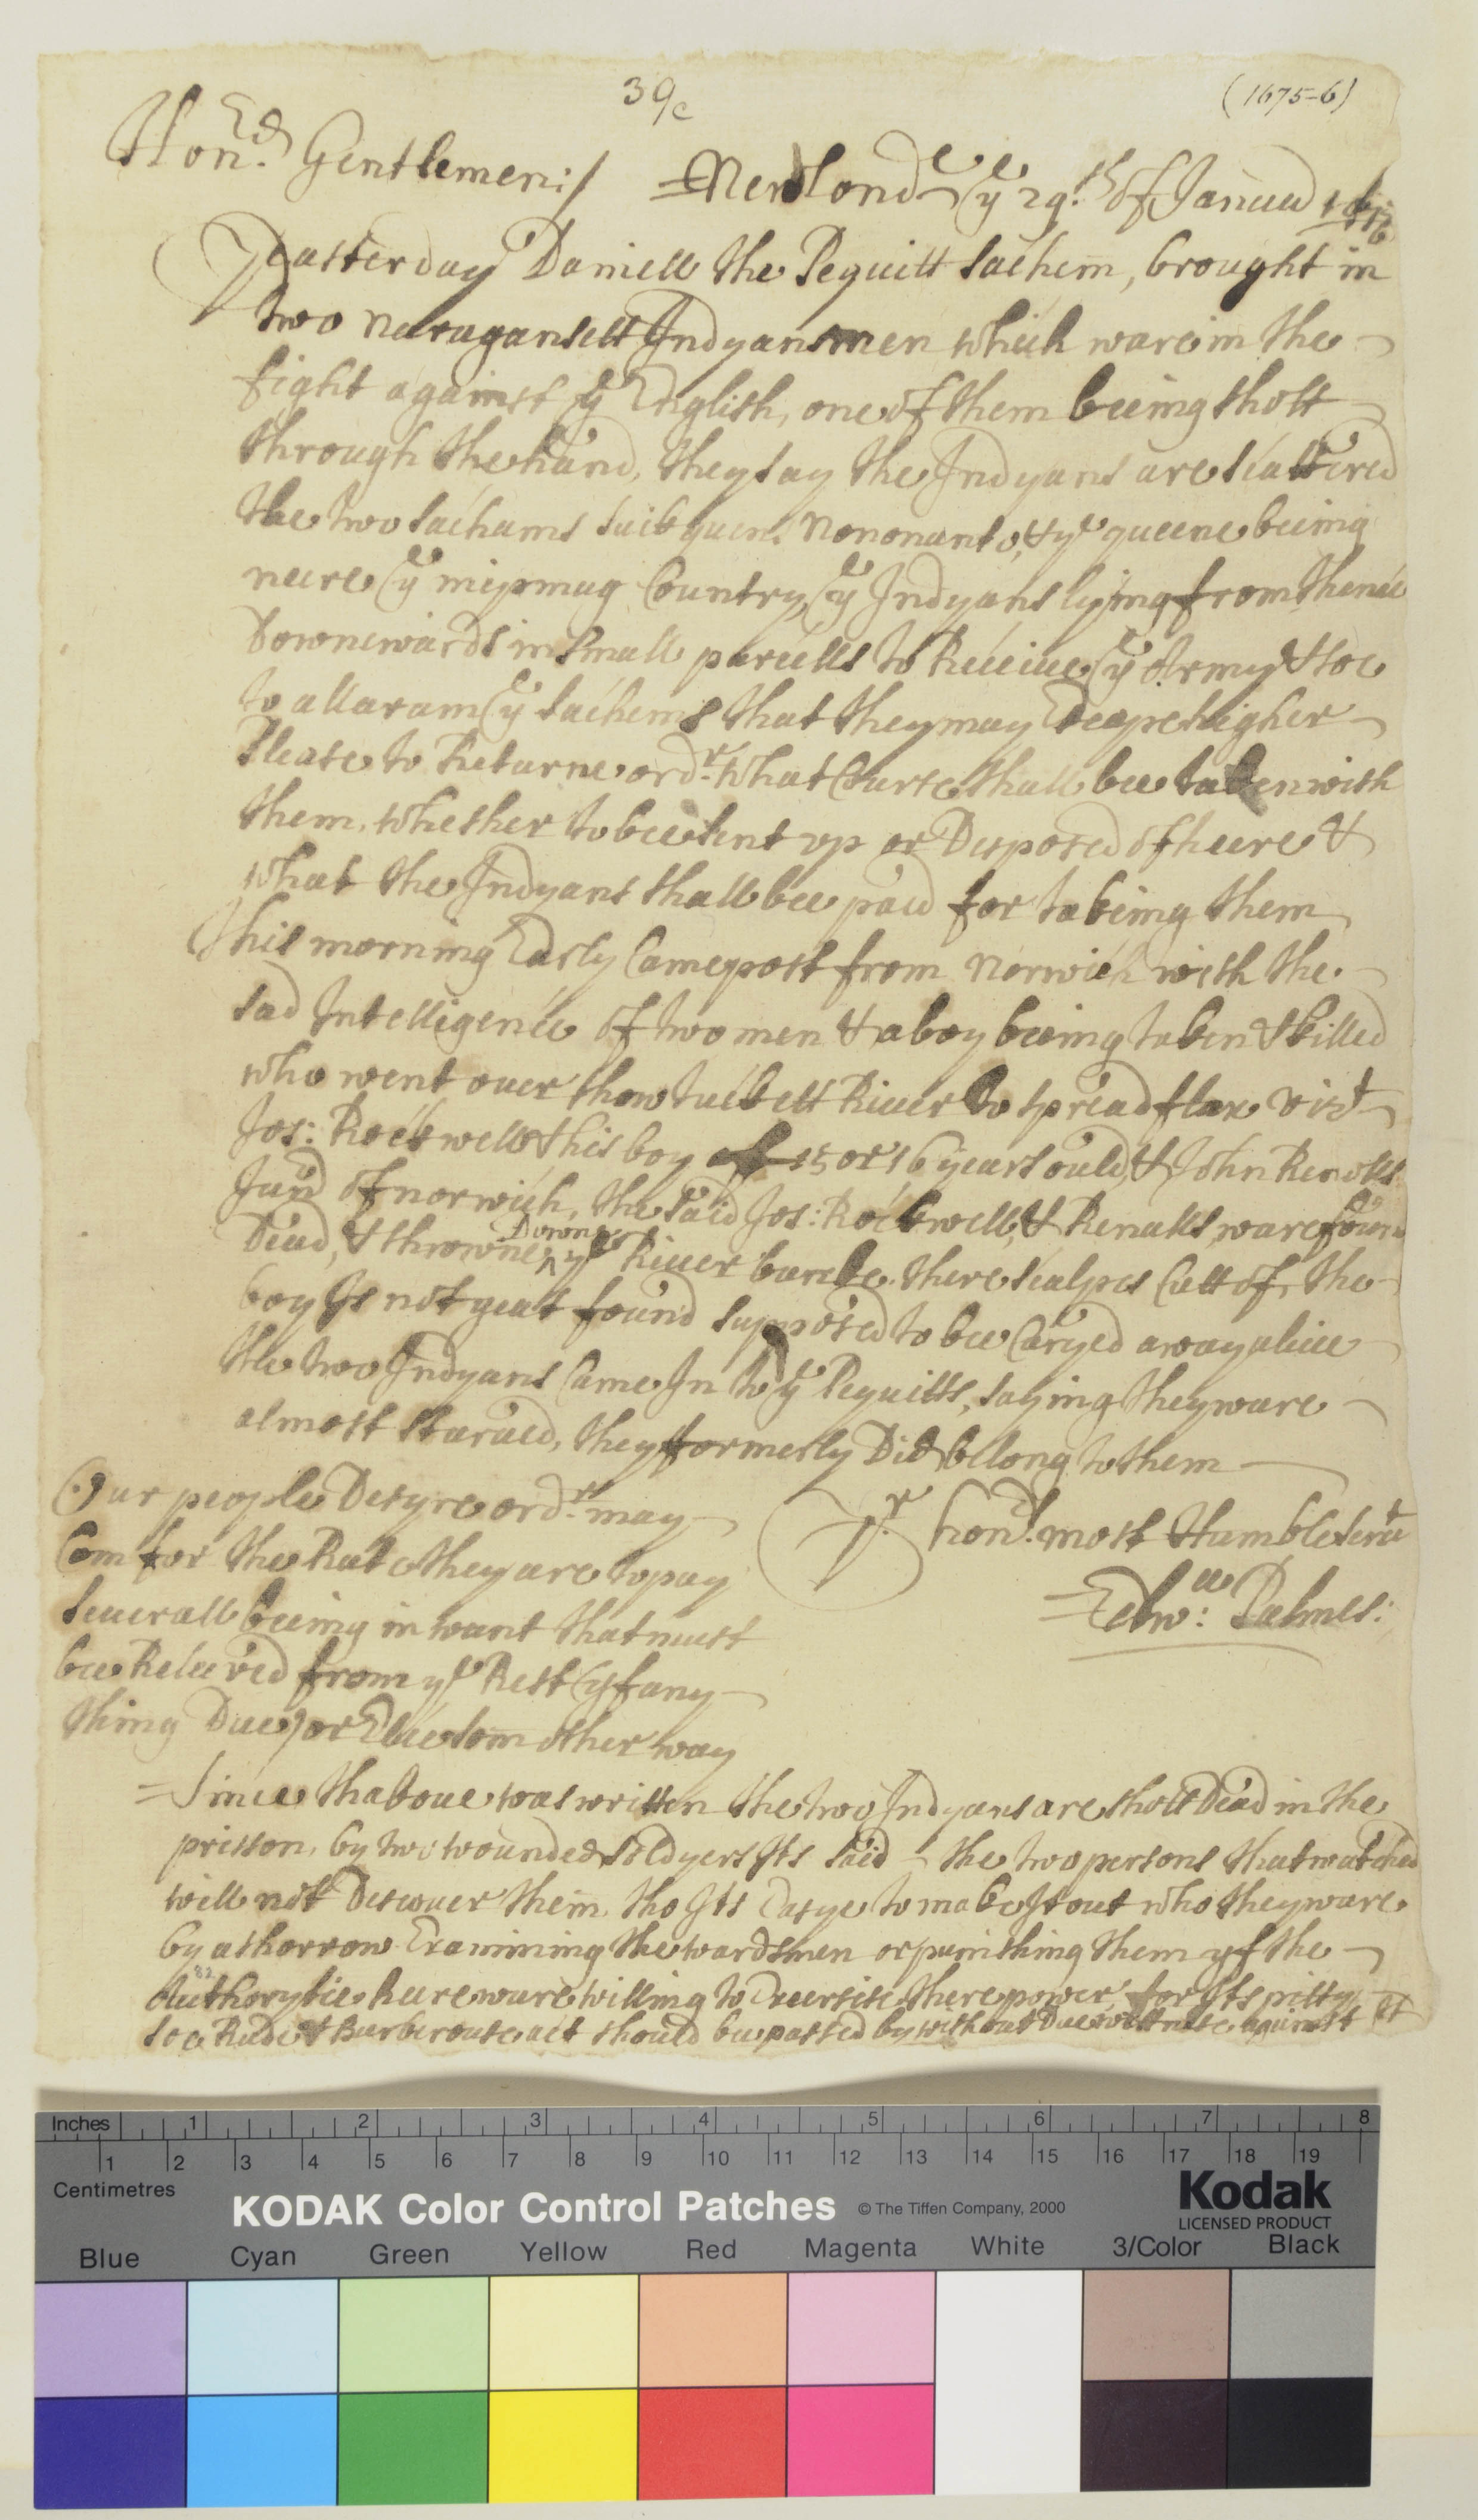 39c
(1675=6)
Hon.ed Gentlemen:/ =New Lond ye 29th of Januа
Yeasterday Daniell the Pequitt Sachem, brought in
two naragansett Indyans men which ware in the
fight against ye English, one of them beeing shott
through the hand, they say the Indyans are scattered
the two sachams Nononanto, & ye queene being
neere ye nipmug Country, ye Indyans lying from thence
Downewards in small parcells to Receiue ye Army & soe
to allaram ye sachems that they may Escape higher
Please to Returne ordr. what Course shall bee taken with
them, whether to bee sent vp or Desposed of heere &
what the Indyans shall bee paid for takeing them
This morning Early Came post from norwich with the
sad Intelligence of two men & a boy beeing taken & killed
who went ouer showtuckett Riuer to spread flax vizt
Jos: Rockwell & his boy of 15 or 16 years ould, & John Renolls
Junr of norwich, the said Jos: Rockwell, & Renalls, ware found
Dead, & throwne Downe ye Riuer bancke. there scalpes Cutt of, the
boy Is not yeat found supposed to bee Caryed away aliue
the two Indyans Came In to ye Pequitts, saying they ware
almost starued, they formerly Did bllong to them
Our people Desyre ordr. may
Com for the Rate they are to pay
seuerall beeing in want that must
bee Releeved from ye Rest (yf any
thing Due) or Elce som other way
Yr honrs. most Humble servt
=Edw: Palmes:
=Since thaboue was written the two Indyans are shott Dead in the
prisson, by two wounded soldyers Its said - the two persons that watched
will not Descouer them, tho Its Easye to make It out who they ware
by a thorrow Examining the wardsmen or punishing them yf the
Authorytie heere ware willing to Exersise there power, for Its pitty
soe Rude & Barberouse act should bee passed by without Due wittnese against It
Inches 1 2 3 4 5 6 7 8
1 2 3 4 5 6 7 8 9 10 11 12 13 14 15 16 17 18 19
Centimetres
KODAK Color Control Patches © The Tiffen Company, 2000 Kodak
LICENSED PRODUCT
Blue Cyan Green Yellow Red Magenta White 3/Color Black